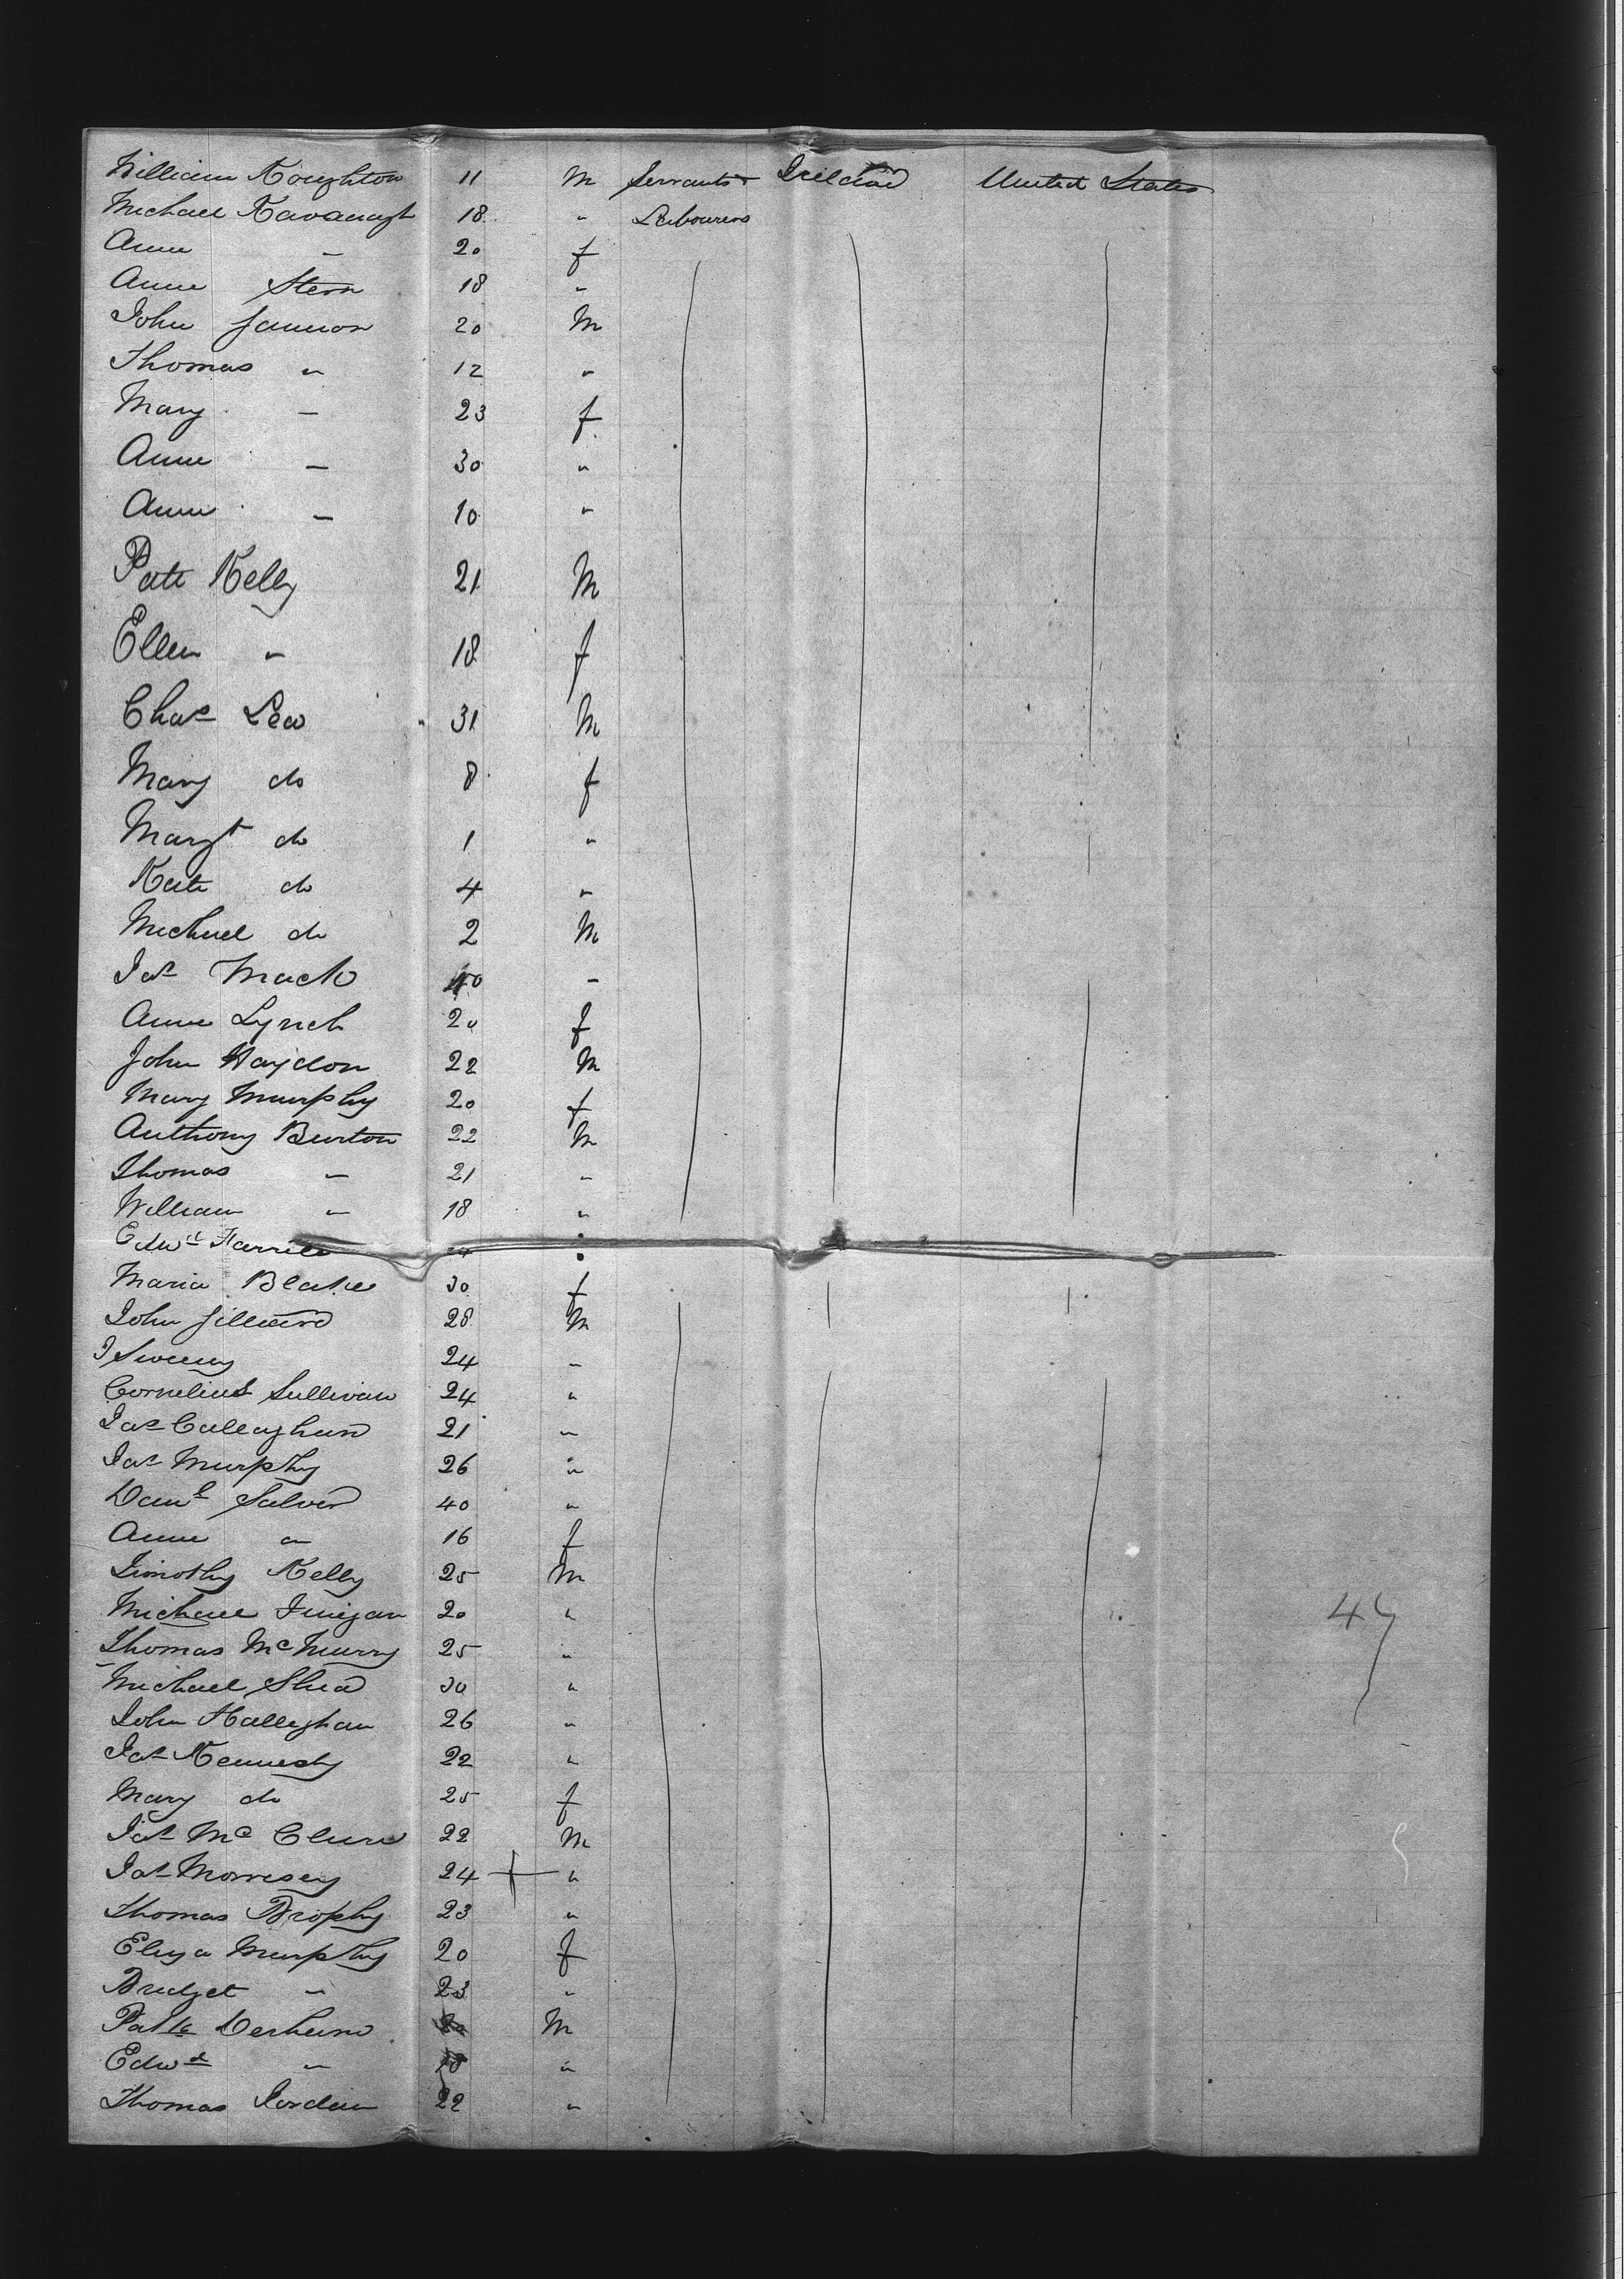 William Houghton 11 M Servants & Ireland United States
Michael Kavanagh 18 " Labourers
Anne " 20 f
Anne Stern 18 "
John Gannon 20 M
Thomas " 12 "
Mary " 23 f
Anne " 30 "
Anne " 10 "
Patk Kelly 21 M
Ellen " 18 f
Chas Lea 31 M
Mary do 8 f
Margt do 1 "
Kate do 4 "
Michael do 2 M
Jas Mack 40 "
Anne Lynch 20 f
John Haydon 22 M
Mary Murphy 20 f
Anthony Burton 22 M
Thomas " 21 "
William " 18 "
Edwd "
Maria Blake 30 f
John 28 M
J Sweeny 24 "
Cornelius Sullivan 24 "
Jas Callaghan 21 "
Jas Murphy 26 "
Danl 40 "
Anne " 16 f
Timothy Kelly 25 M
Michael Finigan 20 "
Thomas McMurry 25 "
Michael Shea 30 "
John Halleghan 26 "
Jas Kennedy 22 "
Mary do 25 f
Jas McClure 22 M
Jas Morresey 24 + "
Thomas Brophy 23 "
Eliza Murphy 20 f
Bridget " 23 "
Patk M
Edwd " "
Thomas Jordan 22 "
47